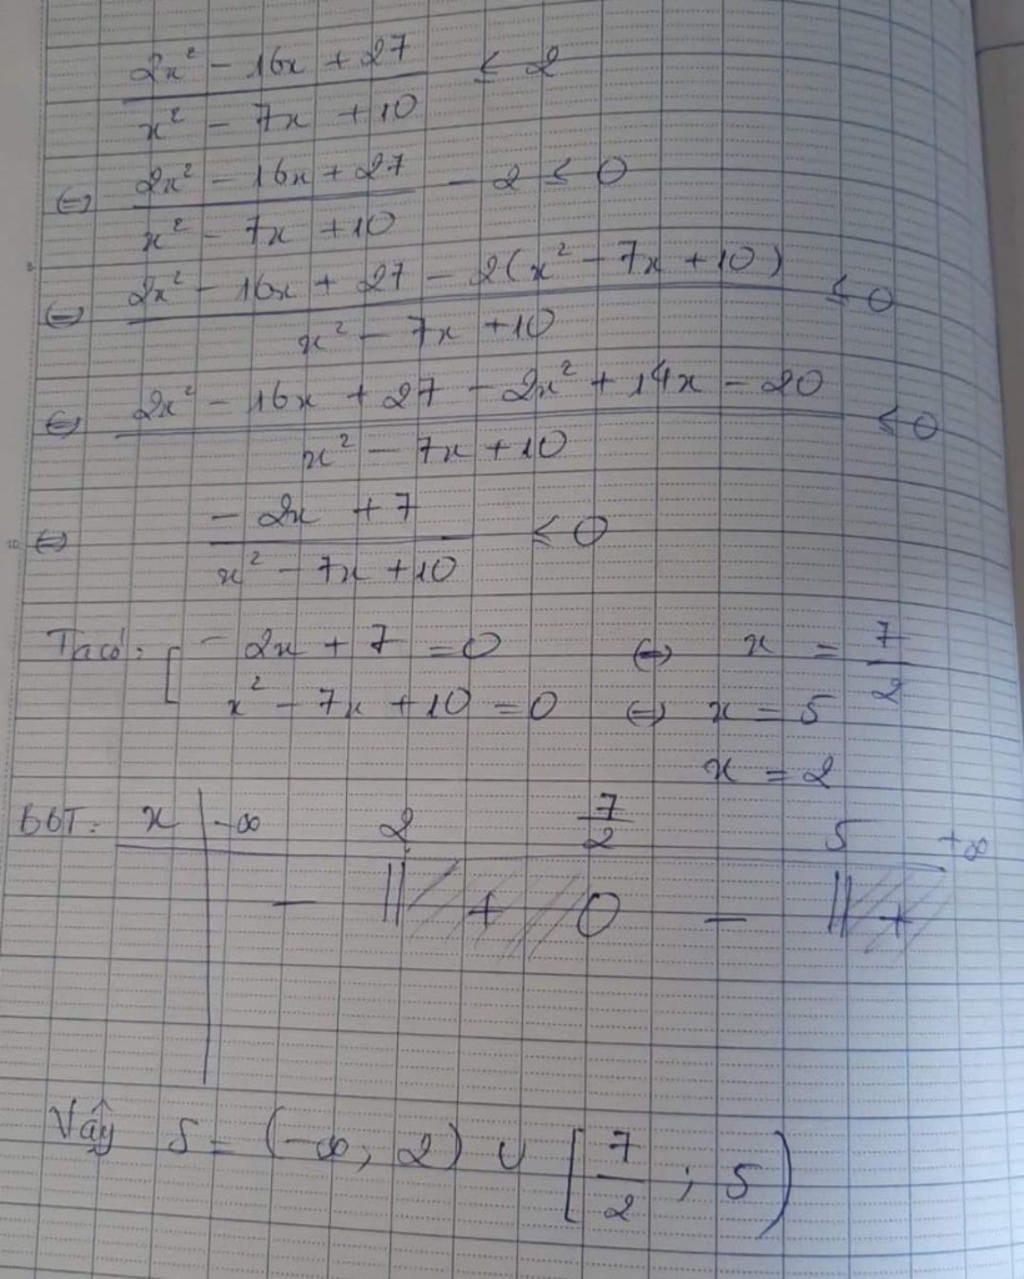 2x² - 16x + 27 / x² - 7x + 10 ≤ 2
⇔ 2x² - 16x + 27 / x² - 7x + 10 - 2 ≤ 0
⇔ 2x² - 16x + 27 - 2(x² - 7x + 10) / x² - 7x + 10 ≤ 0
⇔ 2x² - 16x + 27 - 2x² + 14x - 20 / x² - 7x + 10 ≤ 0
⇔ - 2x + 7 / x² - 7x + 10 ≤ 0
Ta có: [ - 2x + 7 = 0 ⇔ x = 7/2
x² - 7x + 10 = 0 ⇔ x = 5
x = 2
BBT: x | -∞ 2 7/2 5 +∞
- || + 0 - || +
Vậy S = (-∞, 2) ∪ [7/2 ; 5)